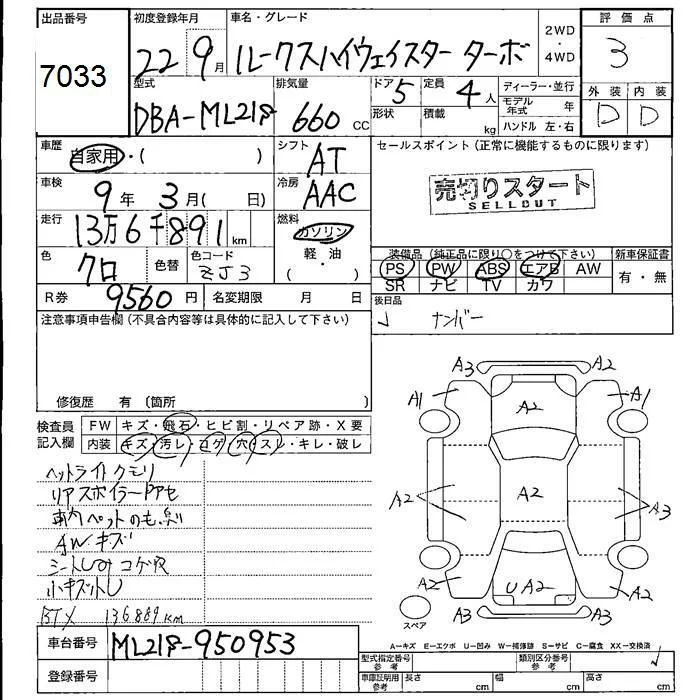 出品番号
7033
初度登録年月
22 9月
車名・グレード
ルークスハイウェイスター ターボ
2WD
・
4WD
評価点
3
外装 内装
D D
型式
DBA-ML21S
排気量
660 CC
ドア 5
定員 4人
形状
積載 kg
ディーラー・並行
モデル年式 年
ハンドル 左・右
車歴
自家用・( )
シフト
AT
セールスポイント(正常に機能するものに限ります)
売切りスタート
SELLOUT
車検
9年 3月( 日)
冷房
AAC
走行
13万6千891km
燃料
ガソリン
軽・油
( ・ )
色
クロ
色替
色コード
ZJ3
装備品(純正品に限り○をつけて下さい)
PS PW ABS エアB AW
SR ナビ TV カワ
新車保証書
有・無
R券 9560円
名変期限 月 日
後日品
ナンバー
注意事項申告欄(不具合内容等は具体的に記入して下さい)
修復歴 有 (箇所 )
検査員記入欄
FW キズ・飛石・ヒビ割・リペア跡・X要
内装 キズ・汚レ・コゲ・穴・スレ・キレ・破レ
ヘットライトクモリ
リアスポイラー
車内ペットのも
AWキズ
コゲ穴
小キズ
136889km
A3 A2
A1 A2 A1
A2 A2 A3
A2 U A2 A2
A3 A3
スペア
A…キズ E…エクボ U…凹み W…補修跡 S…サビ C…腐食 XX…交換済
車台番号
ML21S-950953
登録番号
型式指定番号
参考
類別区分番号
参考
車庫証明用
参考
長さ cm
幅 cm
高さ cm